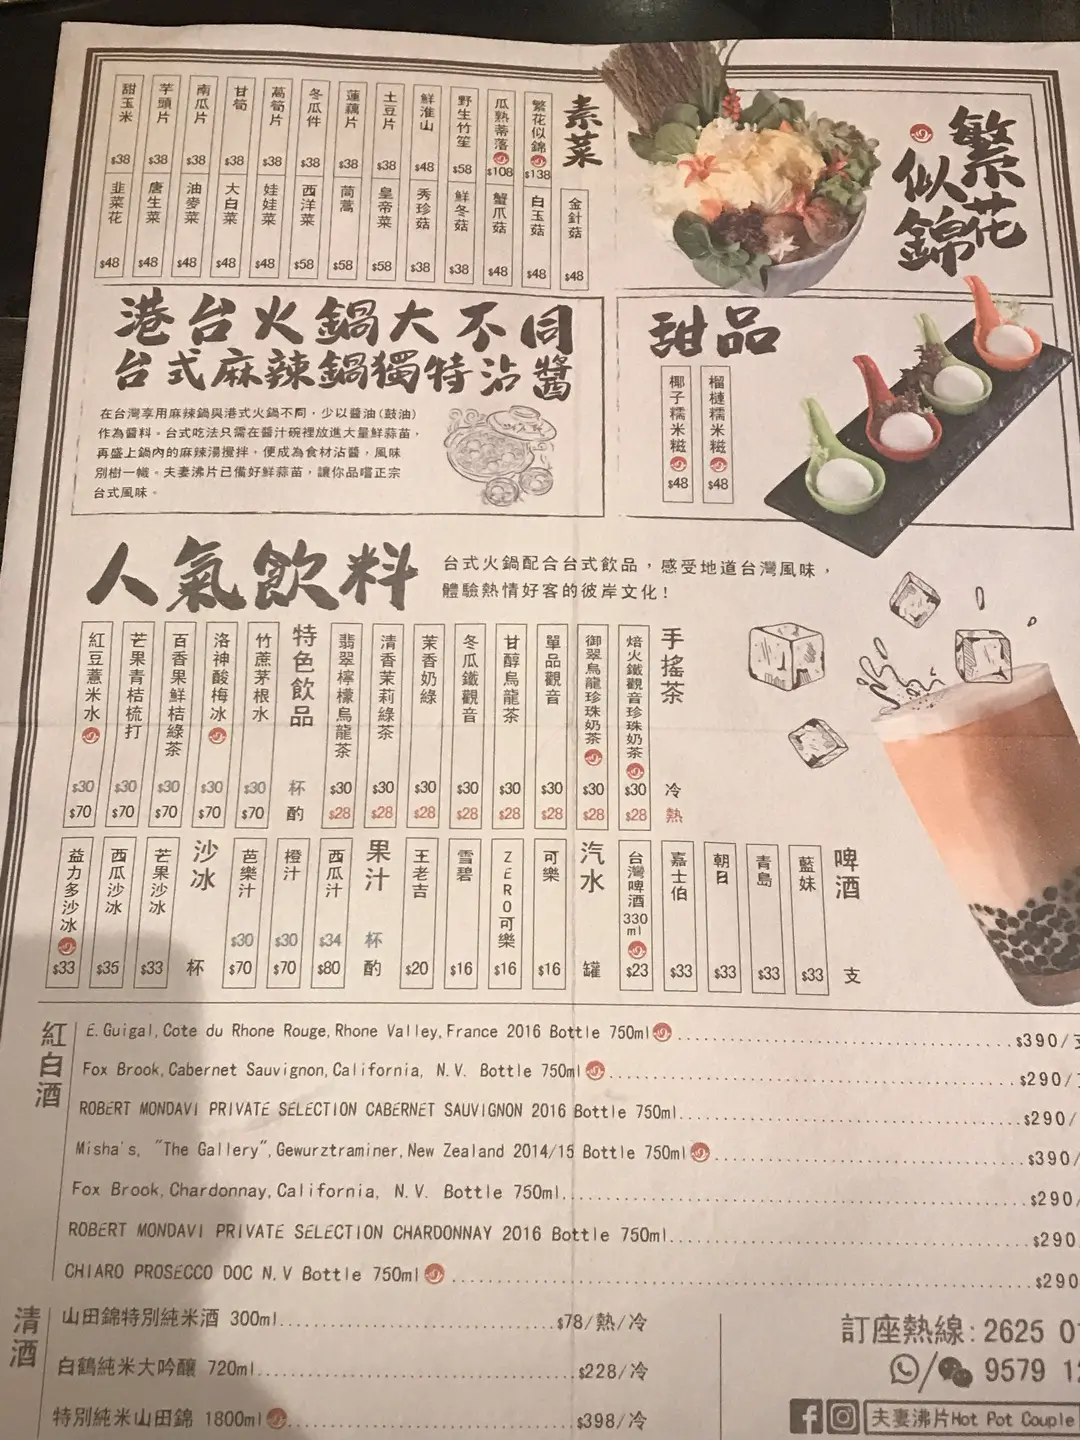 繁花
似錦
素菜
繁花似錦 $138
瓜熟蒂落 $108
野生竹笙 $58
鮮淮山 $48
土豆片 $38
蓮藕片 $38
冬瓜件 $38
萵筍片 $38
甘筍 $38
南瓜片 $38
芋頭片 $38
甜玉米 $38
金針菇 $48
白玉菇 $48
蟹爪菇 $48
鮮冬菇 $38
秀珍菇 $38
皇帝菜 $58
茼蒿 $58
西洋菜 $58
娃娃菜 $48
大白菜 $48
油麥菜 $48
唐生菜 $48
韭菜花 $48
港台火鍋大不同
台式麻辣鍋獨特沾醬
在台灣享用麻辣鍋與港式火鍋不同，少以醬油(鼓油)
作為醬料。台式吃法只需在醬汁碗裡放進大量鮮蒜苗，
再盛上鍋內的麻辣湯攪拌，便成為食材沾醬，風味
別樹一幟。夫妻沸片已備好鮮蒜苗，讓你品嚐正宗
台式風味。
甜品
榴槤糯米糍 $48
椰子糯米糍 $48
人氣飲料
台式火鍋配合台式飲品，感受地道台灣風味，
體驗熱情好客的彼岸文化!
手搖茶 冷 熱
焙火鐵觀音珍珠奶茶 $30 $28
御翠烏龍珍珠奶茶 $30 $28
單品觀音 $30 $28
甘醇烏龍茶 $30 $28
冬瓜鐵觀音 $30 $28
茉香奶綠 $30 $28
清香茉莉綠茶 $30 $28
翡翠檸檬烏龍茶 $30 $28
特色飲品 杯 酌
竹蔗茅根水 $30 $70
洛神酸梅冰 $30 $70
百香果鮮桔綠茶 $30 $70
芒果青桔梳打 $30 $70
紅豆薏米水 $30 $70
啤酒 支
藍妹 $33
青島 $33
朝日 $33
嘉士伯 $33
台灣啤酒 330ml $23
汽水 罐
可樂 $16
ZERO可樂 $16
雪碧 $16
王老吉 $20
果汁 杯 酌
西瓜汁 $34 $80
橙汁 $30 $70
芭樂汁 $30 $70
沙冰 杯
芒果沙冰 $33
西瓜沙冰 $35
益力多沙冰 $33
紅白酒
E.Guigal,Cote du Rhone Rouge,Rhone Valley,France 2016 Bottle 750ml $390/支
Fox Brook,Cabernet Sauvignon,California, N.V. Bottle 750ml $290/
ROBERT MONDAVI PRIVATE SELECTION CABERNET SAUVIGNON 2016 Bottle 750ml $290/
Misha's, "The Gallery",Gewurztraminer,New Zealand 2014/15 Bottle 750ml $390/
Fox Brook,Chardonnay,California, N.V. Bottle 750ml $290/
ROBERT MONDAVI PRIVATE SELECTION CHARDONNAY 2016 Bottle 750ml $290
CHIARO PROSECCO DOC N.V Bottle 750ml $290
清酒
山田錦特別純米酒 300ml $78/熱/冷
白鶴純米大吟釀 720ml $228/冷
特別純米山田錦 1800ml $398/冷
訂座熱線:2625 0
/ 9579 12
夫妻沸片Hot Pot Couple